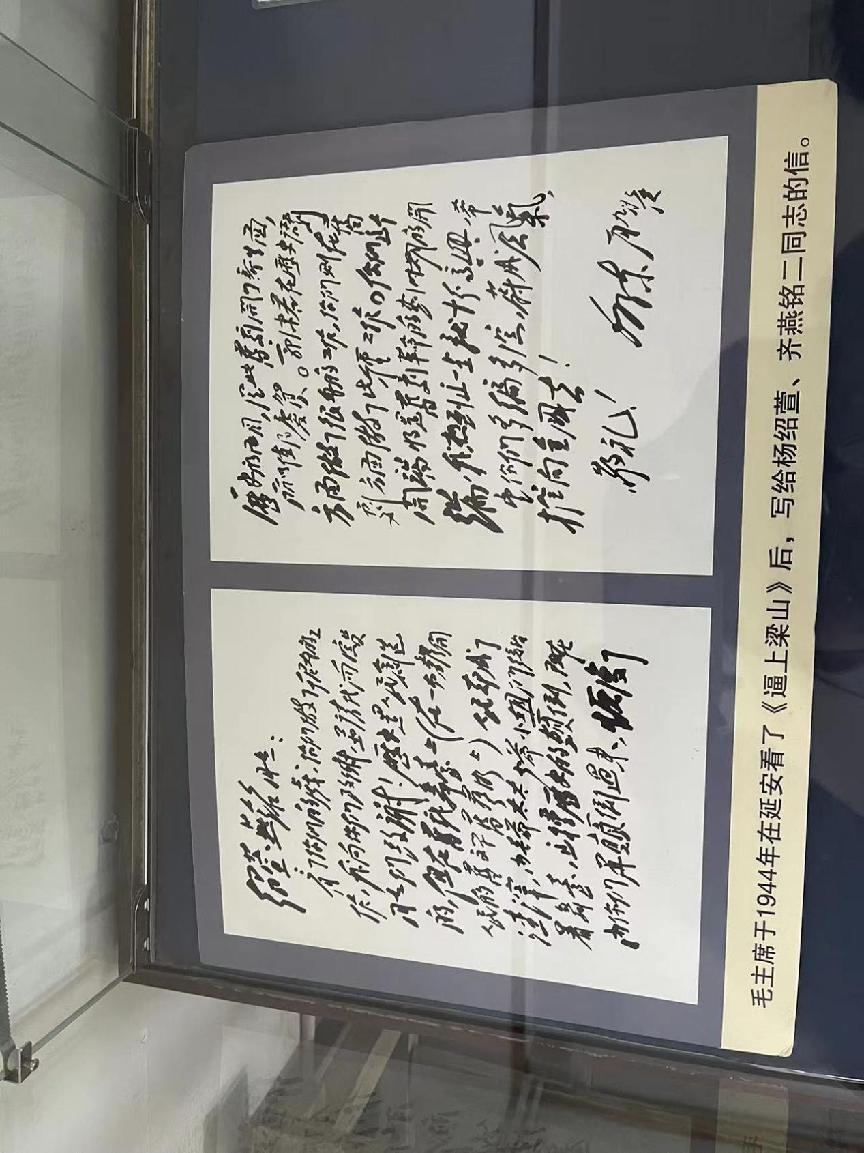 绍萱、燕铭同志：
看了你们的戏，你们做了很好的工
作，我向你们致谢，并请代向演员
同志们致谢！历史是人民创造
的，但在旧戏舞台上（在一切离开
人民的旧文学旧艺术上）人民却成了
渣滓，由老爷太太少爷小姐们统治
着舞台，这种历史的颠倒，现在
由你们再颠倒过来，恢复了
历史的面目，从此旧剧开了新生面，
所以值得庆贺。郭沫若在历史话剧
方面做了很好的工作，你们则在旧
剧方面做了此种工作。你们这个
开端将是旧剧革命的划时期的开
端，我想到这一点就十分高兴，希
望你们多编多演，蔚成风气，
推向全国去！
敬礼！
毛泽东
毛主席于1944年在延安看了《逼上梁山》后，写给杨绍萱、齐燕铭二同志的信。